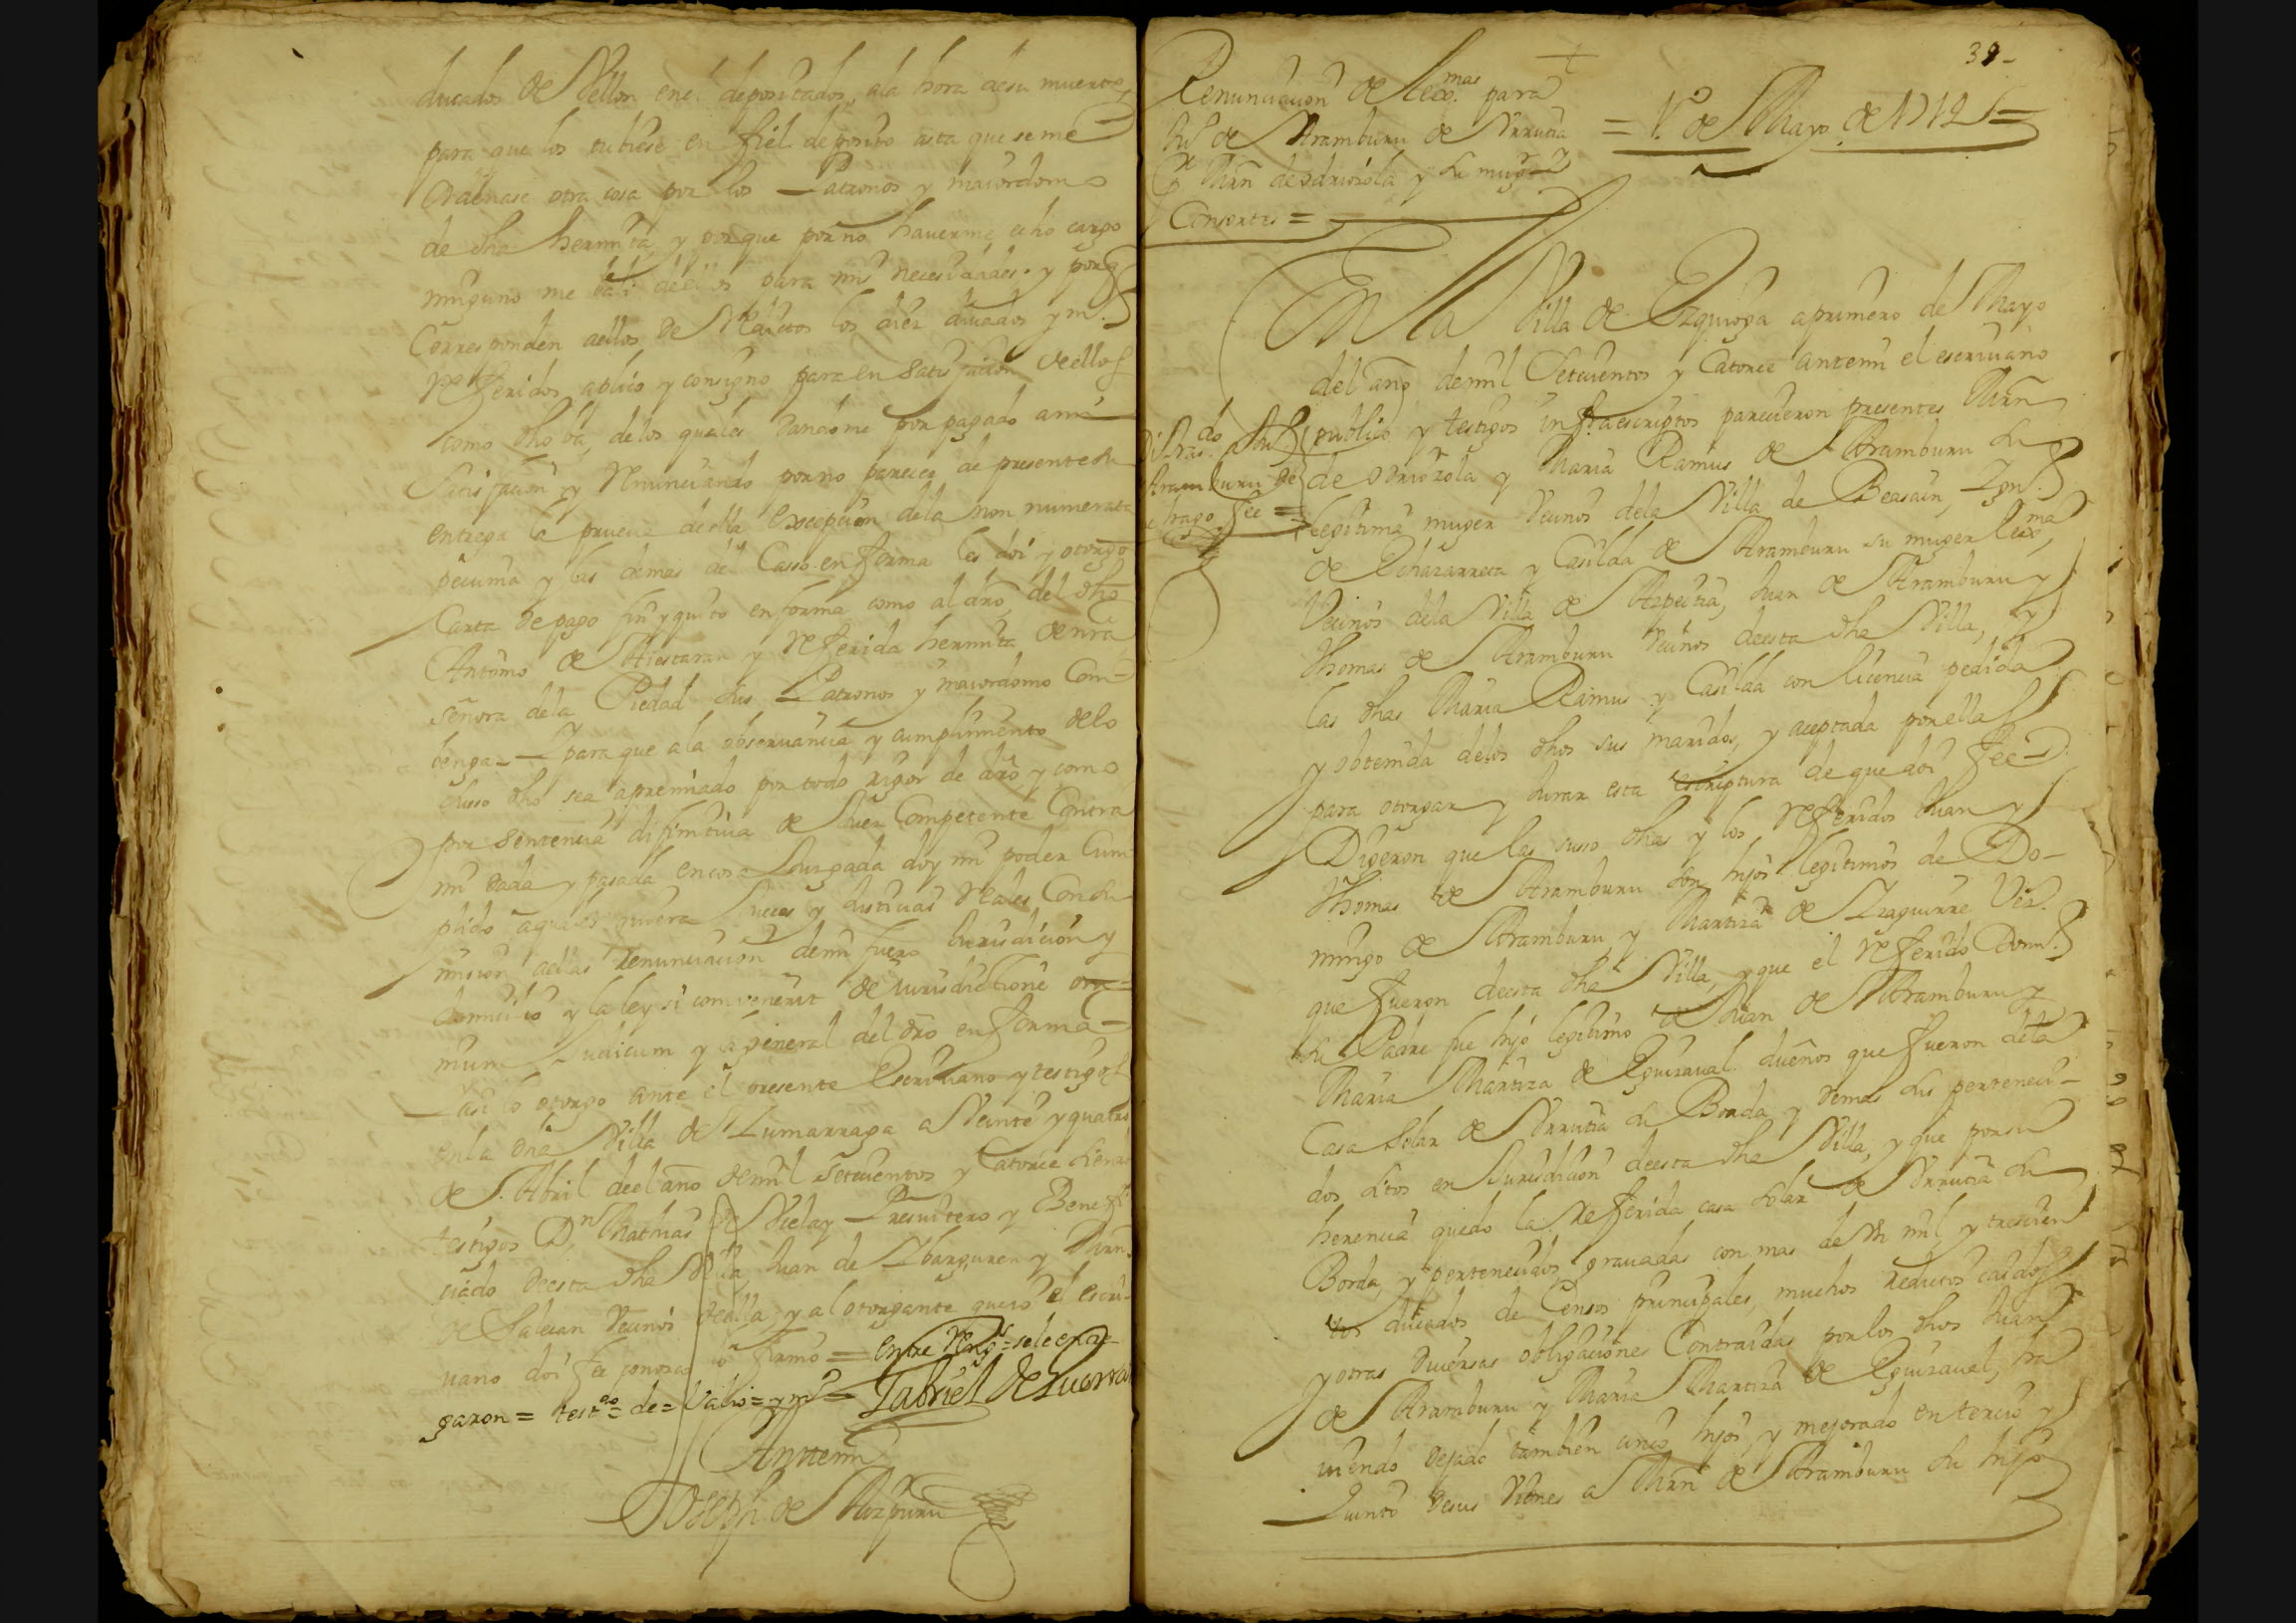 ducados de Vellon en el depositados, ala hora desu muerte,
para que los tubiese en fiel deposito asta que se me
Ordenase otra cosa por los Patronos y maiordomo
de dha hermita, y porque por no hauerme echo cargo
ninguno me balí dellos para mis necesidades y porq
Corresponden aellos de Reditos los diez ducados y m.º
referidos aplico y consigno para en satisfacion de ellos
como dho ba, de los quales dandome por pagado ami
Satisfacion y Renunciando por no parecer de presente su
entrega la prueua de ella Excepcion dela non numerata
pecunia y las demas del Casso en forma les doi y otorgo
Carta de pago fin y quito en forma como al dro, del dho
Antonio de Aiestaran y referida hermita de nra
señora dela Piedad sus Patronos y maiordomo Com-
benga_ Y para que ala obseruancia y cumplimento delo
susso dho sea apremiado por todo rigor de dro y como
por sentencia difinitiua de Juez Competente Contra
mi dada y pasada en cosa Juzgada doy mi poder Cum
plido a quales quiera Jueces y Justicias Reales Con su
mision aellas renunciacion demi fuero Jurisdicion y
domicilio y la ley si convenerit de jurisdictione om=
nium Judicum y la general del dro en forma=
Y asi lo otorgo ante el presente Escriuano y testigos
en la dha Villa de Zumarraga a Veinte y quatro
de Abril deel año de mil setecientos y Catorce siendo
testigos Dn Mathias de Vicley Presuitero y Benefi
ciado deesta dha Villa, Juan de Ybarguren y Mrn
de Salcian Vecinos deella, y al otorgante que io el escri-
uano doi fee conozco lo firmó = entre Reng.s = sele entre
garon = testdo = de = Valio = y m.º = Gabriel de Guerra
Antemi
Joseph de Aizpuru
39_
Renunciacion de lexmas para
Ju.º de Aramburu de Vrrutia
Pr Mrn de odriozola y su mugr y
Consortes =
= 1.º de Mayo de 1714 =
En la Villa de Ezquioga a primero de Mayo
del año de mil Setecientos y Catorce antemi el escriuano
publico y testigos infraescriptos parecieron presentes Mrn
de odriozola y Maria Ramus de Aramburu su
legitima muger Vecinos dela Villa de Beasain, Ign.º
de Echazarreta y Casilda de Aramburu su muger lexma
Vecinos dela Villa de Azpeitia, Juan de Aramburu y
Thomas de Aramburu Vecinos deesta dha Villa, y
las dhas Maria Ramus y Casilda con licencia pedida
y obtenida delos dhos sus maridos, y aceptada por ellos
para otorgar y Jurar esta escriptura de que doi fee
Digeron que las susso dhas y los referidos Juan y
Thomas de Aramburu son hijos legitimos de Do-
mingo de Aramburu y Martiza de Yzaguirre Vez.s
que fueron deesta dha Villa, y que el referido Dom.º
su Padre fue hijo legitimo de Juan de Aramburu y
Maria Martiza de Eguizaual dueños que fueron dela
Casa Solar de Vrrutia su Borda y demas sus pertenecí-
dos sitos en Jurisdicion deesta dha Villa, y que por su
herencia quedo la Referida casa Solar de Vrrutia su
Borda, y pertenecidos grauadas con mas de mil y trescien
tos ducados de Censos principales, muchos reditos caidos
y otras diuersas obligaciones Contraidas por los dhos Juan
de Aramburu y Maria Martiza de Eguizaual, ha
uiendo dejado tambien cinco hijos y mejorado en tercio y
Quinto desus Vienes a Mrn de Aramburu su hijo